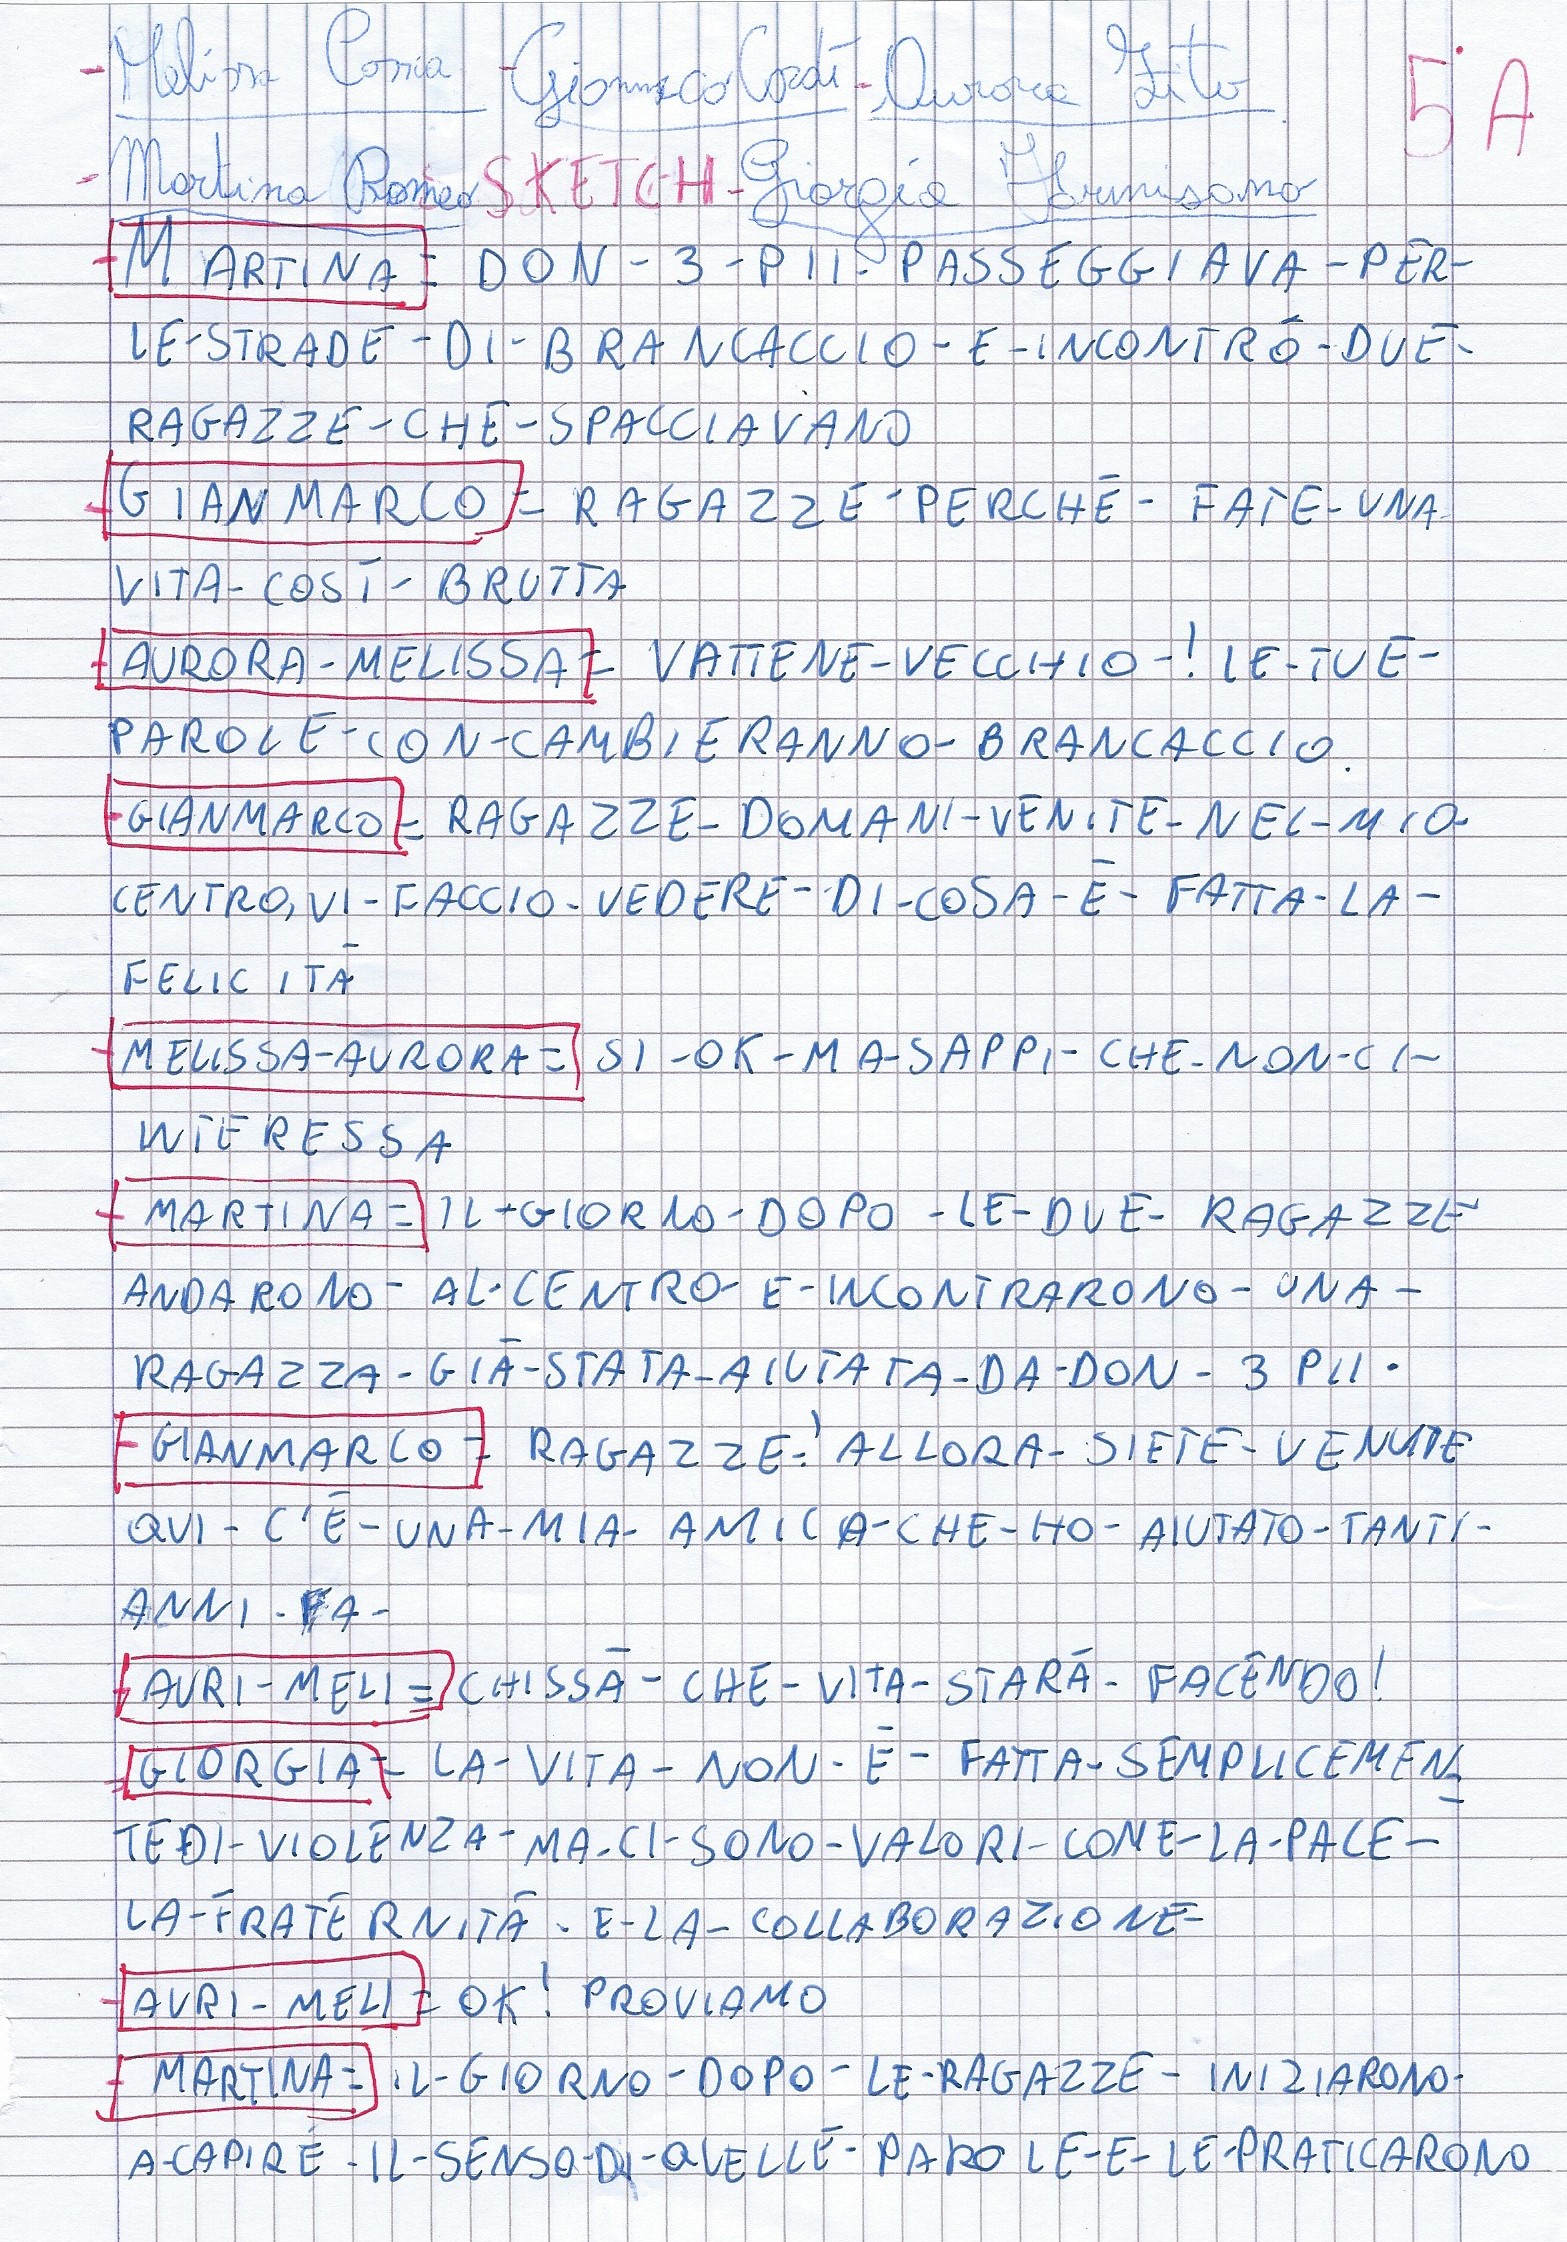 - Melissa - Gianmarco Cordì - Aurora Zito 5A
- Martina Romeo SKETCH - Giorgia
- MARTINA = DON - 3 - PII - PASSEGGIAVA - PER -
LE - STRADE - DI - BRANCACCIO - E - INCONTRÒ - DUE -
RAGAZZE - CHE - SPACCIAVANO
- GIANMARCO = RAGAZZE - PERCHÉ - FATE - UNA
VITA - COSÌ - BRUTTA
- AURORA - MELISSA = VATTENE - VECCHIO - ! LE - TUE -
PAROLE - CON - CAMBIERANNO - BRANCACCIO.
- GIANMARCO = RAGAZZE - DOMANI - VENITE - NEL - MIO -
CENTRO, VI - FACCIO - VEDERE - DI - COSA - È - FATTA - LA -
FELICITÀ
- MELISSA - AURORA = SI - OK - MA - SAPPI - CHE - NON - CI -
INTERESSA
- MARTINA = IL - GIORNO - DOPO - LE - DUE - RAGAZZE
ANDARONO - AL - CENTRO - E - INCONTRARONO - UNA -
RAGAZZA - GIÀ - STATA - AIUTATA - DA - DON - 3 PII .
- GIANMARCO = RAGAZZE - ! ALLORA - SIETE - VENUTE
QUI - C'È - UNA - MIA - AMICA - CHE - HO - AIUTATO - TANTI -
ANNI - FA -
- AURI - MELI = CHISSÀ - CHE - VITA - STARÀ - FACENDO!
- GIORGIA = LA - VITA - NON - È - FATTA - SEMPLICEMEN
TE DI - VIOLENZA - MA - CI - SONO - VALORI - COME - LA - PACE -
LA - FRATERNITÀ - E - LA - COLLABORAZIONE -
- AURI - MELI = OK! PROVIAMO
- MARTINA = IL - GIORNO - DOPO - LE - RAGAZZE - INIZIARONO -
A - CAPIRE - IL - SENSO - DI - QUELLE - PAROLE - E - LE - PRATICARONO